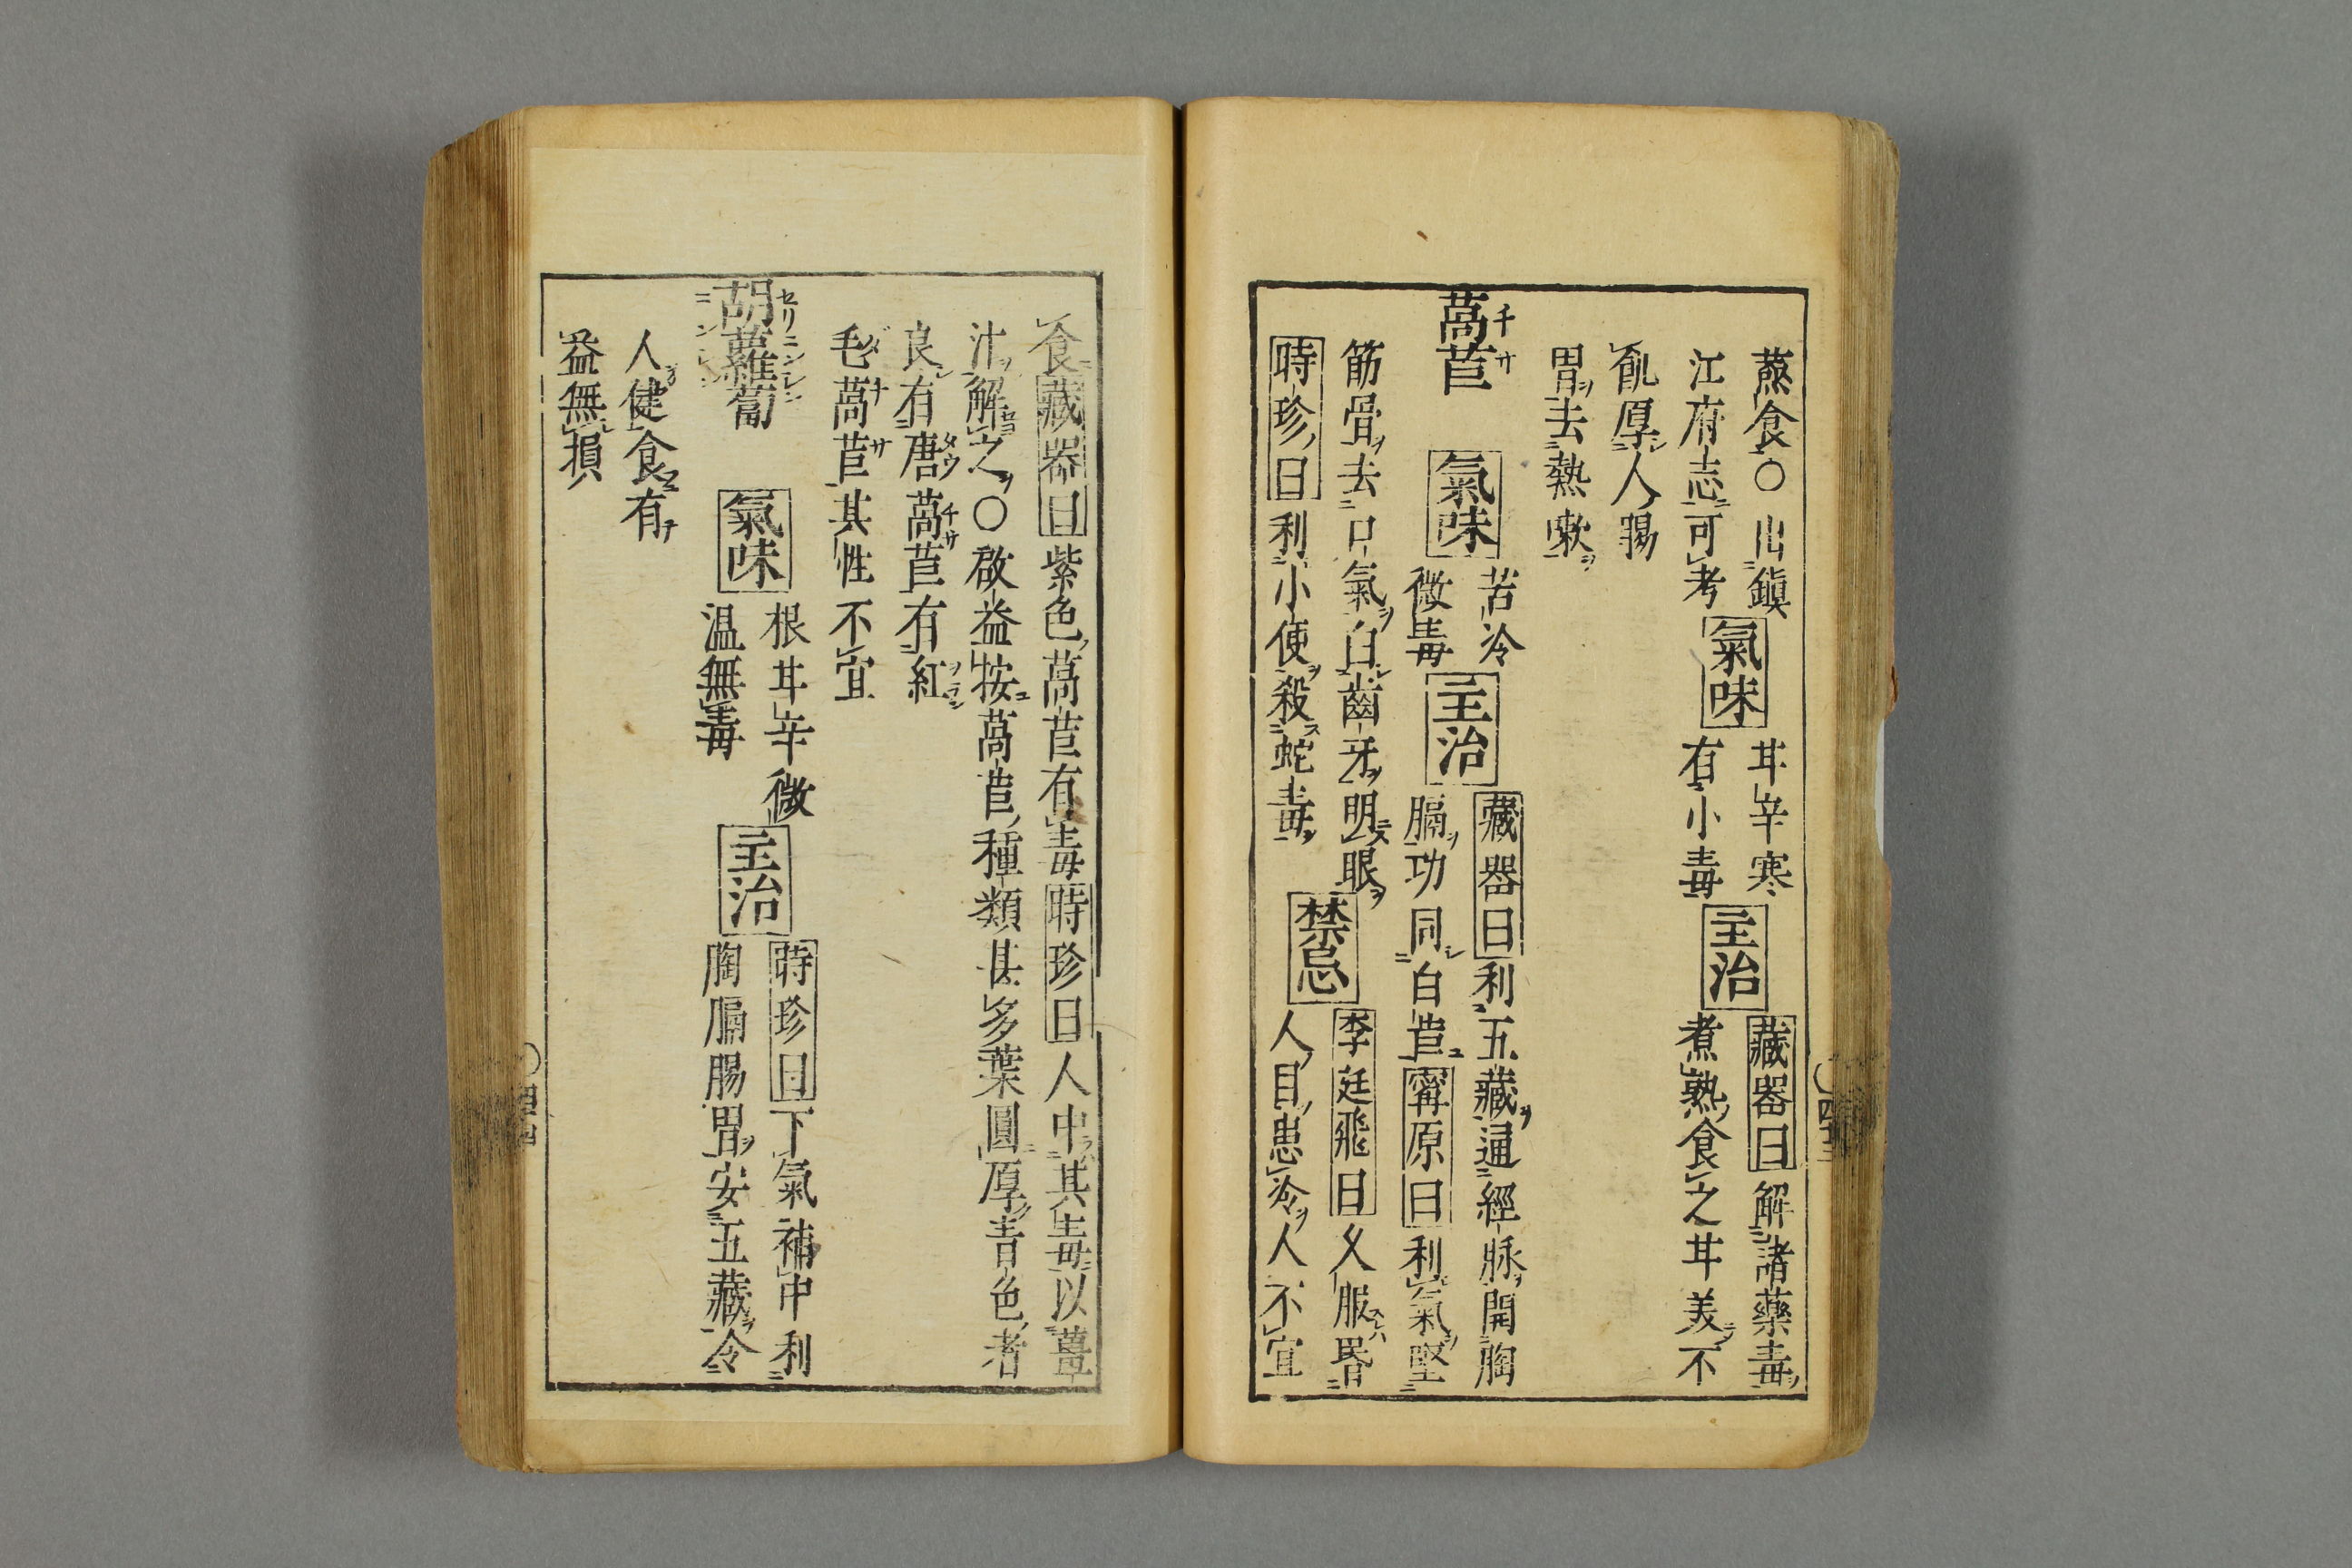 蒸食○出鎭
江府志可考
氣味
甘辛寒
有小毒
主治
藏器曰解諸藥毒
煮熟食之甘美不
飢厚人腸
胃去熱嗽
萵苣
チサ
氣味
苦冷
微毒
主治
藏器曰利五藏通經脉開胸
膈功同白苣寗原曰利氣堅
筋骨去口氣白齒牙明眼
時珍曰利小便殺蛇毒
禁忌
李廷飛曰久服昏
人目患冷人不宜
四十三
食藏器曰紫色萵苣有毒時珍曰人中其毒以薑
汁解之○啟益按萵苣種類甚多葉圓厚青色者
良有唐萵苣有紅
毛萵苣其性不宜
胡蘿蔔
セリニンジン
氣味
根甘辛微
温無毒
主治
時珍曰下氣補中利
胸膈腸胃安五藏令
人健食有
益無損